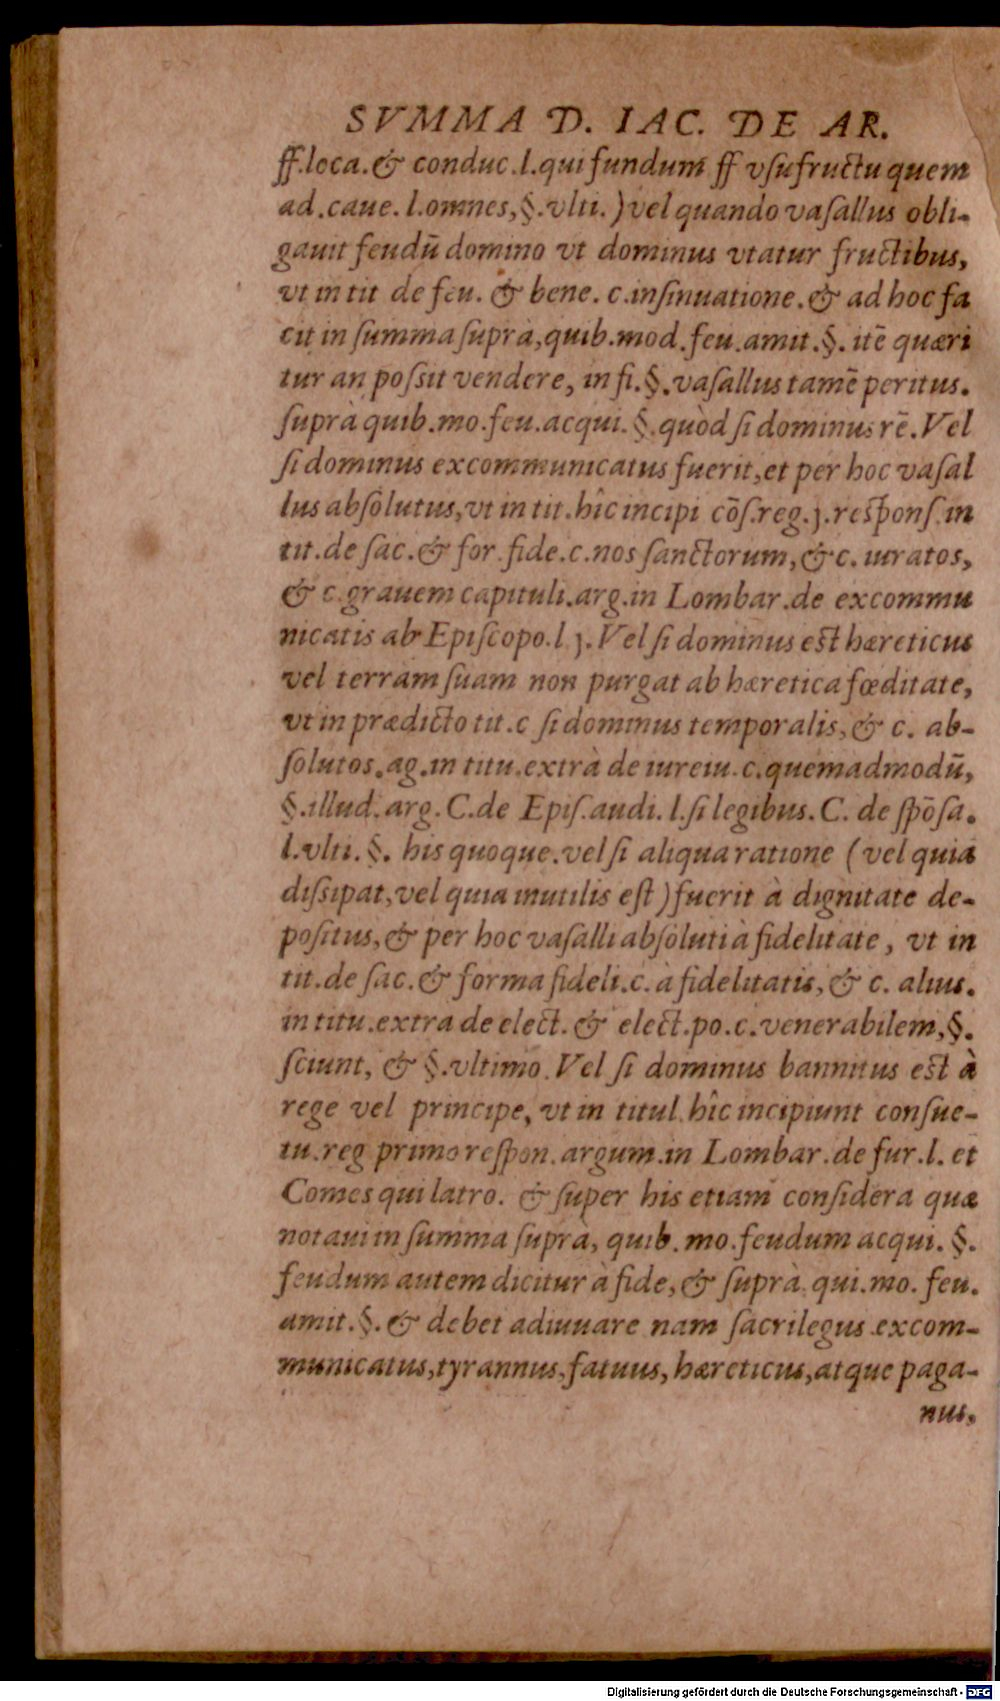 SVMMA D. IAC. DE AR.
ff.loca.& conduc.l.qui fundum ff vſufructu quem
ad.caue.l.omnes,§.vlti.)vel quando vaſallus obli-
gauit feudū domino vt dominus vtatur fructibus,
vt in tit de feu. & bene. c.inſinuatione.& ad hoc fa
cit in ſumma ſuprà,quib.mod.feu.amit.§. itē quæri
tur an poſsit vendere, in fi.§.vaſallus tamē peritus.
ſuprà quib.mo.feu.acqui.§.quòd ſi dominus rē.Vel
ſi dominus excommunicatus fuerit,et per hoc vaſal
lus abſolutus,vt in tit.hîc incipi cōſ.reg.j.reſponſ.in
tit.de ſac.& for.fide.c.nos ſanctorum,& c. iuratos,
& c.grauem capituli.arg.in Lombar.de excommu
nicatis ab Epiſcopo.l j.Vel ſi dominus eſt hæreticus
vel terram ſuam non purgat ab hæretica fœditate,
vt in prædicto tit.c ſi dominus temporalis,& c. ab-
ſolutos.ag.in titu.extrà de iureiu.c.quemadmodū,
§.illud.arg.C.de Epiſ.audi.l.ſi legibus.C. de ſpōſa.
l.vlti.§. his quoque.vel ſi aliqua ratione (vel quia
diſsipat,vel quia inutilis eſt)fuerit à dignitate de-
poſitus,& per hoc vaſalli abſoluti à fidelitate, vt in
tit.de ſac.& forma fideli.c. à fidelitatis,& c. alius.
in titu.extra de elect.& elect.po.c.venerabilem,§.
ſciunt, & §.vltimo.Vel ſi dominus bannitus eſt à
rege vel principe, vt in titul.hîc incipiunt conſue-
tu.reg primo reſpon.argum.in Lombar.de fur.l. et
Comes qui latro. & ſuper his etiam conſidera quæ
notaui in ſumma ſuprà, quib. mo.feudum acqui. §.
feudum autem dicitur à fide,& ſuprà qui.mo. feu.
amit.§.& debet adiuuare nam ſacrilegus excom-
municatus,tyrannus,fatuus,hæreticus,atque paga-
nus.
Digitalisierung gefördert durch die Deutsche Forschungsgemeinschaft - DFG